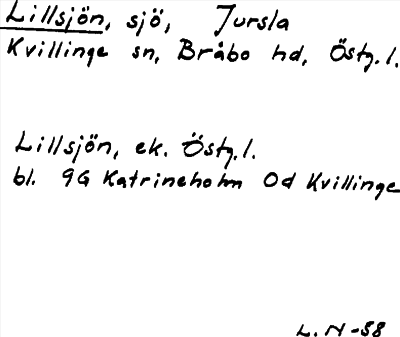 Lillsjön, sjö, Jursla
Kvillinge sn, Bråbo hd, Östg. l.
Lillsjön, ek. Östg. l.
bl. 9G Katrineholm Od Kvillinge
L. N -88